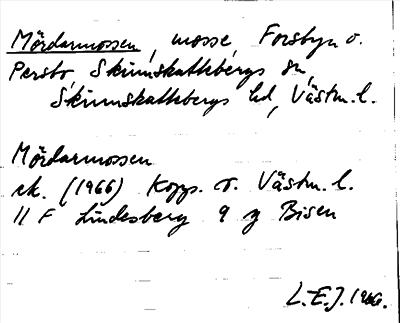 Mördarmossen, mosse, Forsbyn o.
Persbo, Skinnskattebergs sn,
Skinnskattebergs hd, Västm. l.
Mördarmossen
ek. (1966) Kopp. o. Västm. l.
11 F Lindesberg 9 g Bisen
L.E.J. 1966.